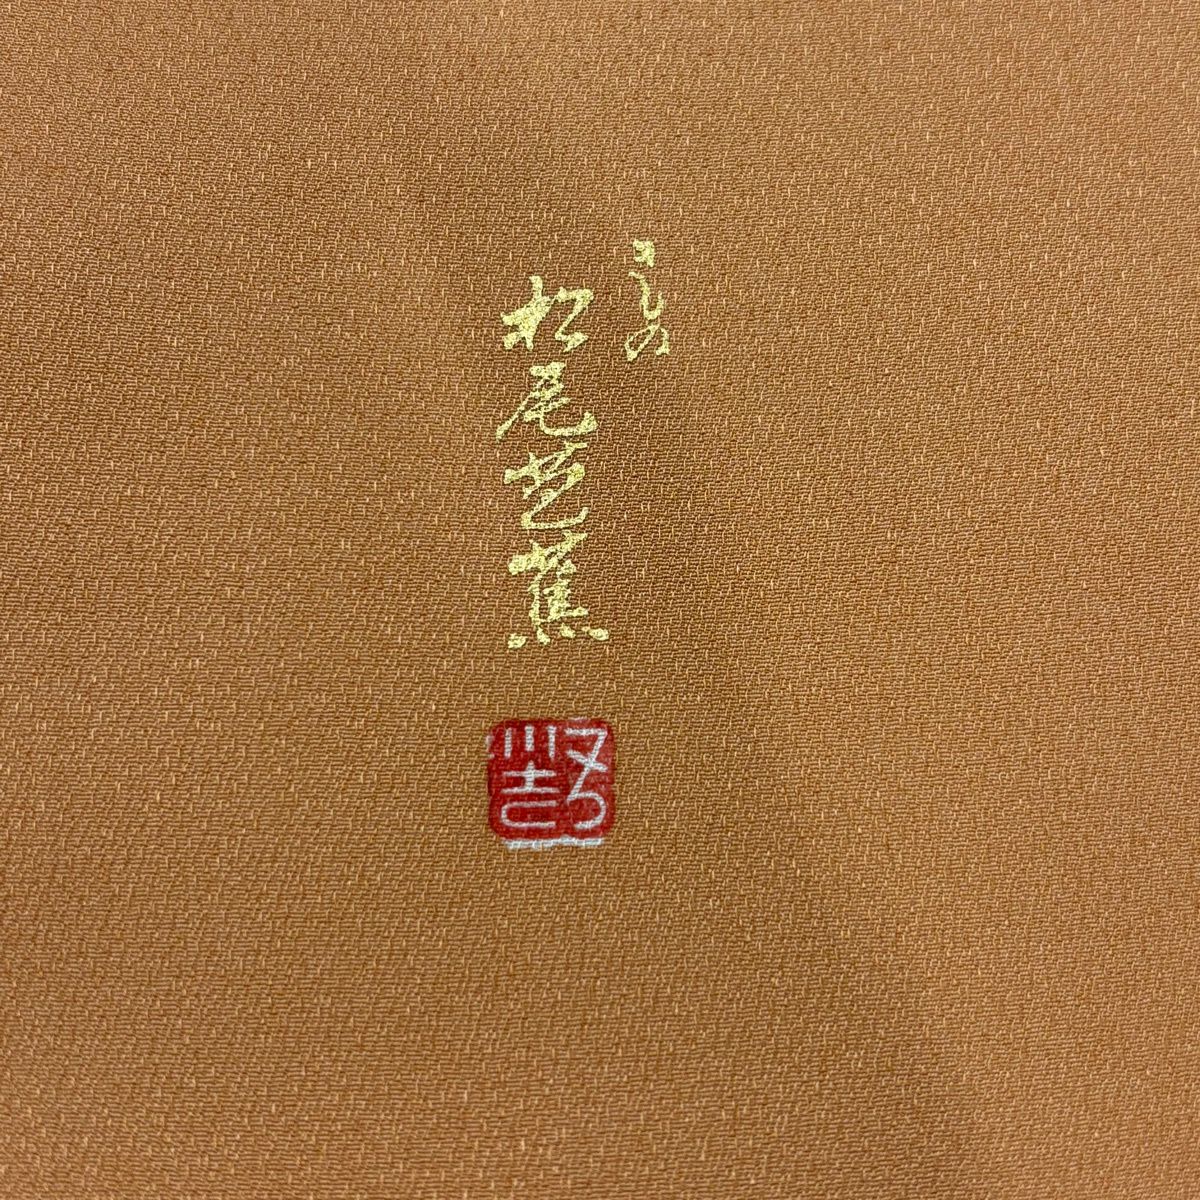 よしの
松尾芭蕉